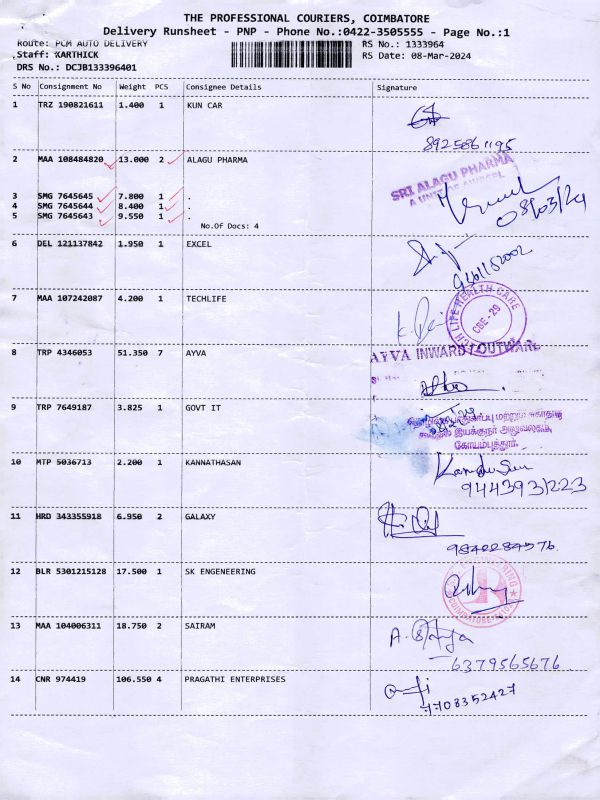 THE PROFESSIONAL COURIERS, COIMBATORE
Delivery Runsheet - PNP - Phone No.:0422-3505555 - Page No.:1
Route: PCM AUTO DELIVERY RS No.: 1333964
Staff: KARTHICK RS Date: 08-Mar-2024
DRS No.: DCJB133396401
S No Consignment No Weight PCS Consignee Details Signature
1 TRZ 190821611 1.400 1 KUN CAR
8925861195
2 MAA 108484820 13.000 2 ALAGU PHARMA
SRI ALAGU PHARMA
3 SMG 7645645 7.800 1 .
4 SMG 7645644 8.400 1 .
5 SMG 7645643 9.550 1 .
08/03/24
No.Of Docs: 4
6 DEL 121137842 1.950 1 EXCEL
7 MAA 107242087 4.200 1 TECHLIFE
TECH LIFE HEALTH CARE
CBE-29
8 TRP 4346053 51.350 7 AYVA
AYVA INWARD / OUTWARD
9 TRP 7649187 3.825 1 GOVT IT
கோயம்புத்தூர்.
10 MTP 5036713 2.200 1 KANNATHASAN
9443931223
11 HRD 343355918 6.950 2 GALAXY
9842284576
12 BLR 5301215128 17.500 1 SK ENGENEERING
13 MAA 104006311 18.750 2 SAIRAM
6379565676
14 CNR 974419 106.550 4 PRAGATHI ENTERPRISES
7708352427